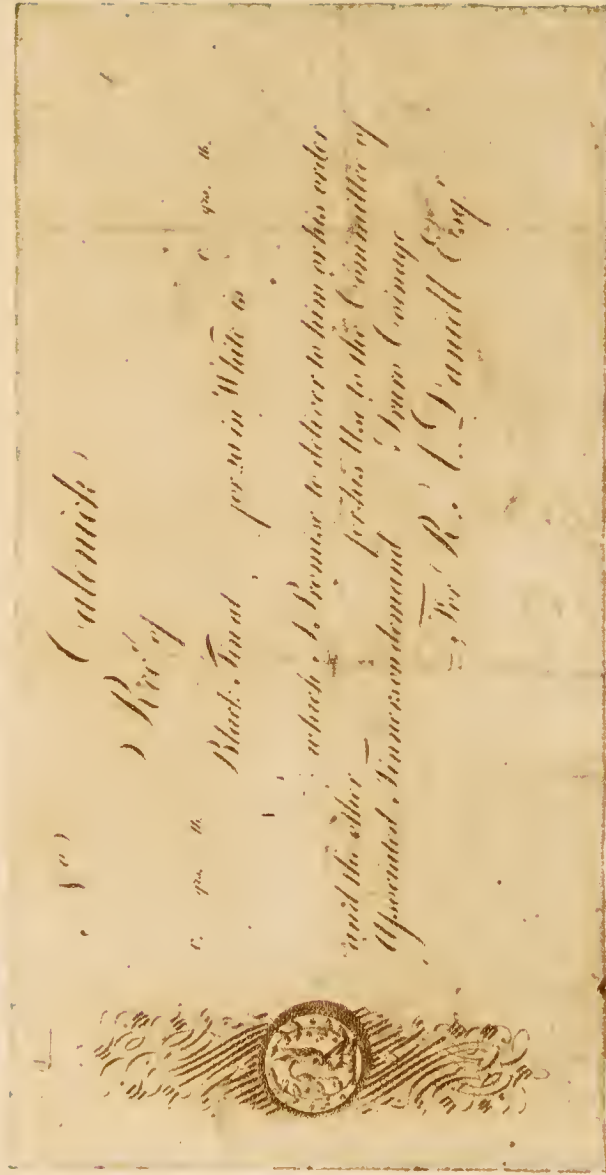 No Calenick
Recd of
C. qrs. lb.
Black Tin at per 20 in White is C. qrs. lb.
which I Promise to deliver to him or his order
and the other for his Use to the Committee of
Associated Tinners on demand Truro Coinage
For R. A. Daniell Esqr